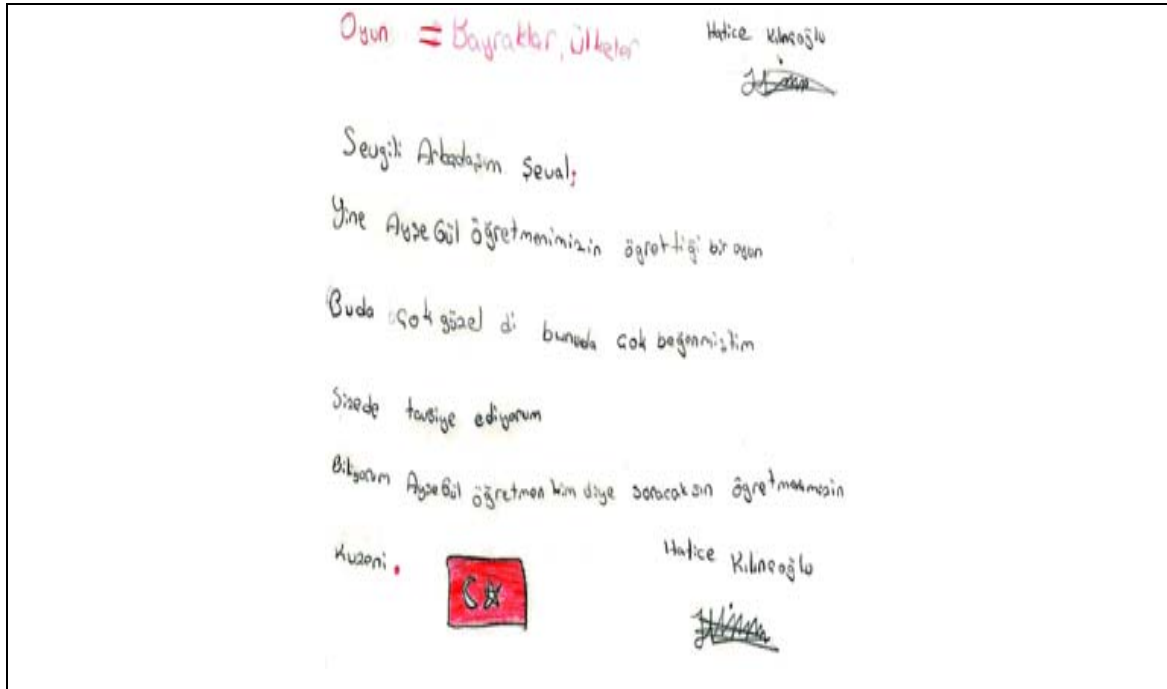 Oyun = Bayraklar, ülkeler
Hatice Kılınçoğlu
Sevgili Arkadaşım Şeval;
Yine AyşeGül öğretmenimizin öğrettiği bir oyun
Buda çok güzel di bunuda çok beğenmiştim
Sizede tavsiye ediyorum
Biliyorum AyşeGül öğretmen kim diye soracaksın öğretmenimizin
Kuzeni.
Hatice Kılınçoğlu